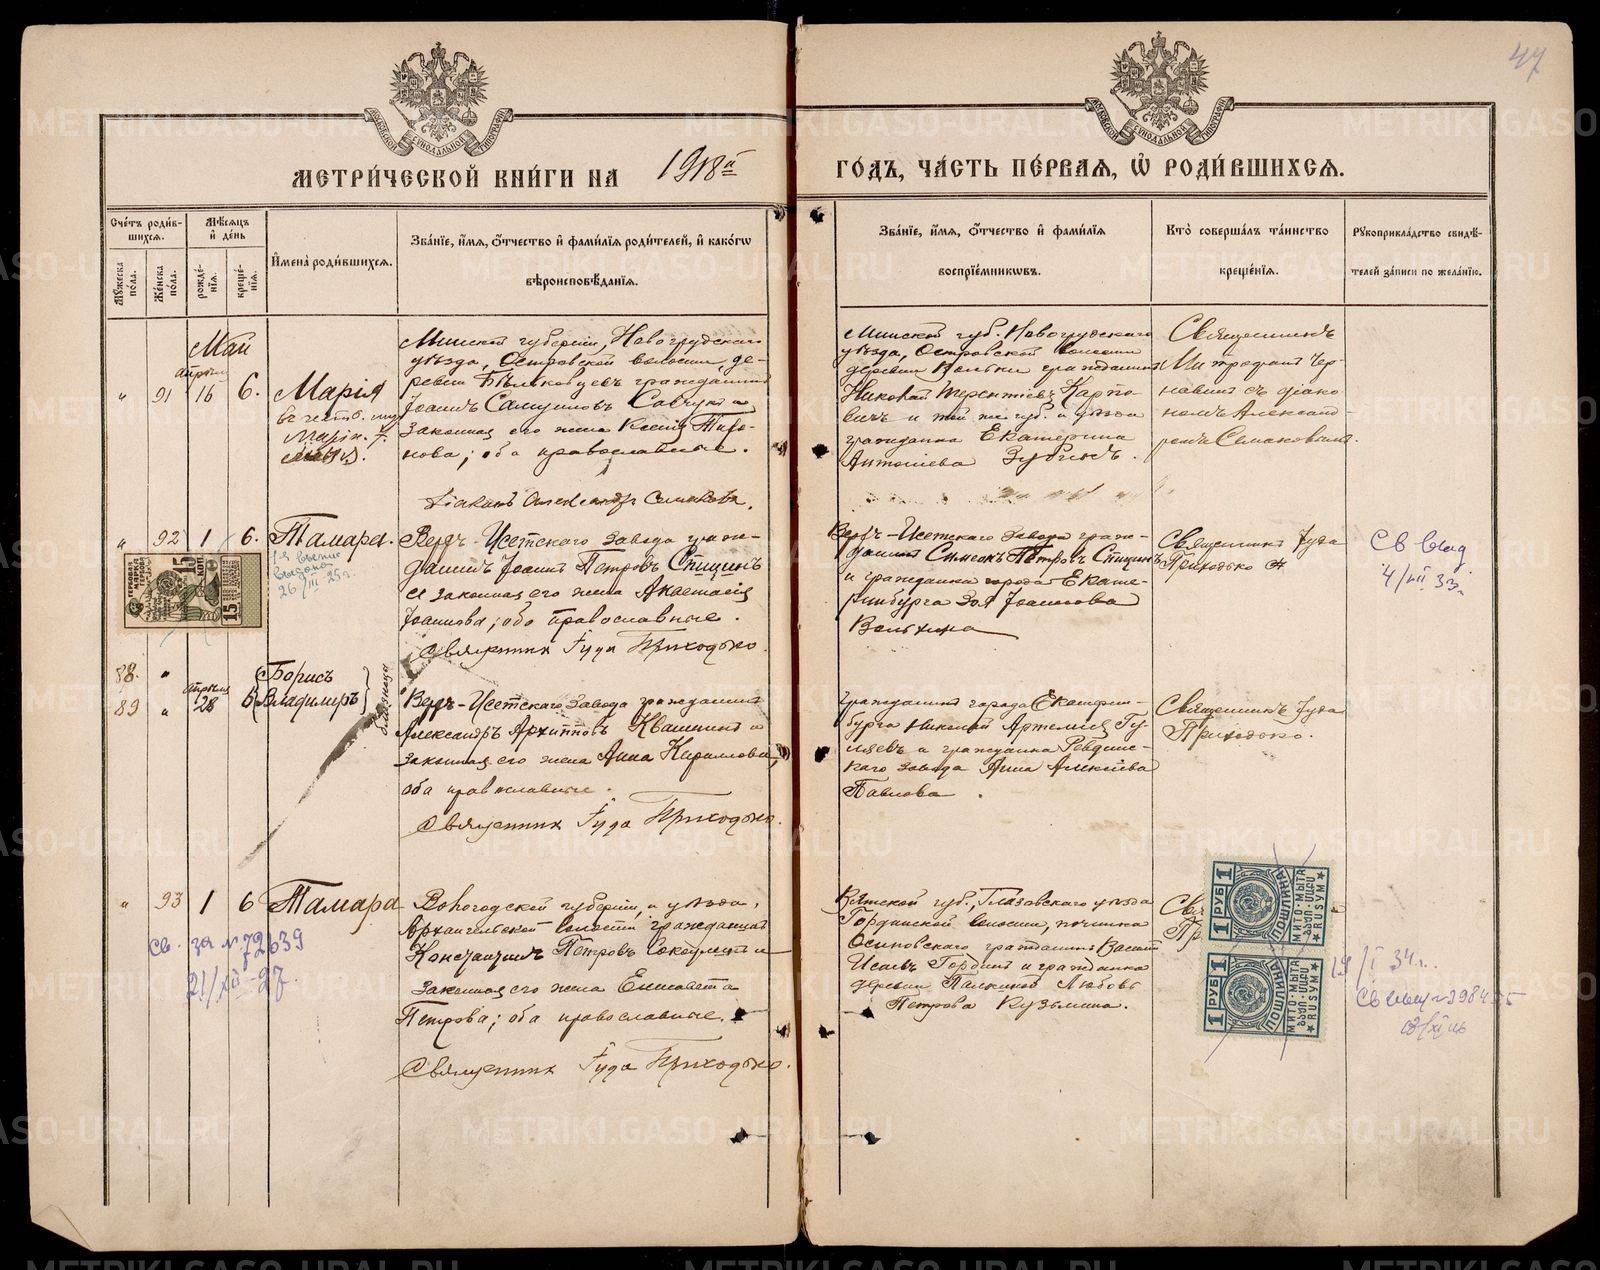 47
МЕТРИ́ЧЕСКОЙ КНИ́ГИ НА 1918й
ГО́ДЪ, ЧА́СТЬ ПЕ́РВАЯ, Ѡ РОДИ́ВШИХСЯ.
Сче́тъ роди́в-
шихся.
Мѣ́сяцъ
и҆ де́нь
Мꙋ́жеска
по́ла.
Же́нска
по́ла.
рожде́-
нїя.
креще́-
нїя.
И҆мена̀ роди́вшихся.
Зва́нїе, и҆́мя, ѻ҆́тчество и҆ фами́лїя роди́телей, и҆ како́гѡ
вѣроисповѣ́данїя.
Зва́нїе, и҆́мя, ѻ҆́тчество и҆ фами́лїя
воспрїе́мникѡвъ.
Кто̀ соверша́лъ та́инство
креще́нїя.
Рꙋкоприкла́дство свидѣ́-
телей за́писи по жела́нїю.
Май
апрѣля
" 91 16 6. Марія
въ честь
Марін.
Минской губерніи, Новогрудскаго
уѣзда, Островской волости, де-
ревни гражданинъ
Іоаннъ Самуиловъ Савчукъ и
законная его жена Ксенія
нова; оба православные.
Діаконъ Александръ Симаковъ.
Минской губ. Новогрудскаго
уѣзда, Островской волости
деревни гражданинъ
Николай Терентіевъ Карпо-
вичъ и той же губ. и уѣзда
гражданка Екатерина
Антоніева
Священникъ
Митрофанъ Чер-
навинъ съ діако-
номъ Александ-
ромъ Симаковымъ.
" 92 1 6. Тамара.
выдана
26/III 25 г.
ГЕРБОВАЯ МАРКА
15 КОП.
15
Верх-Исетскаго завода граж-
данинъ Іоаннъ Петровъ Спицинъ
и законная его жена Анастасія
Іоаннова; оба православные.
Священник Іуда Приходько.
Верх-Исетскаго завода граж-
данинъ Симеон Петровъ Спицинъ
и гражданка города Екате-
ринбурга Зоя Іоаннова
Вольхина
Священникъ Іуда
Приходько
Св выд
4/III 33 г.
88. "
89 " апрѣля 28 6 Борисъ
Владимиръ
близнецы
Верх-Исетскаго завода гражданинъ
Александръ Архипповъ Квашнинъ и
законная его жена Анна Кириллова,
оба православные.
Священник Іуда Приходько.
Гражданинъ города Екатерин-
бурга Николай Артеміевъ Гу-
ляевъ и гражданка Ревдинс-
каго завода Анна Алексѣева
Павлова.
Священникъ Іуда
Приходько.
" 93 1 6 Тамара
Св. за № 72639
21/XII-27.
Вологодской губерніи, и уѣзда,
Архангельской волости гражданинъ
Константинъ Петровъ и
законная его жена Елисавета
Петрова; оба православные.
Священник Іуда Приходько.
Вятской губ., Глазовскаго уѣзда
Гординской волости, починка
Осиновскаго гражданинъ Василій
Исаевъ Гординъ и гражданка
деревни Любовь
Петрова Кузьмина.
Свя
Пр
1 РУБ 1
ПОШЛИНА
1 РУБ 1
ПОШЛИНА
18/I 34 г.